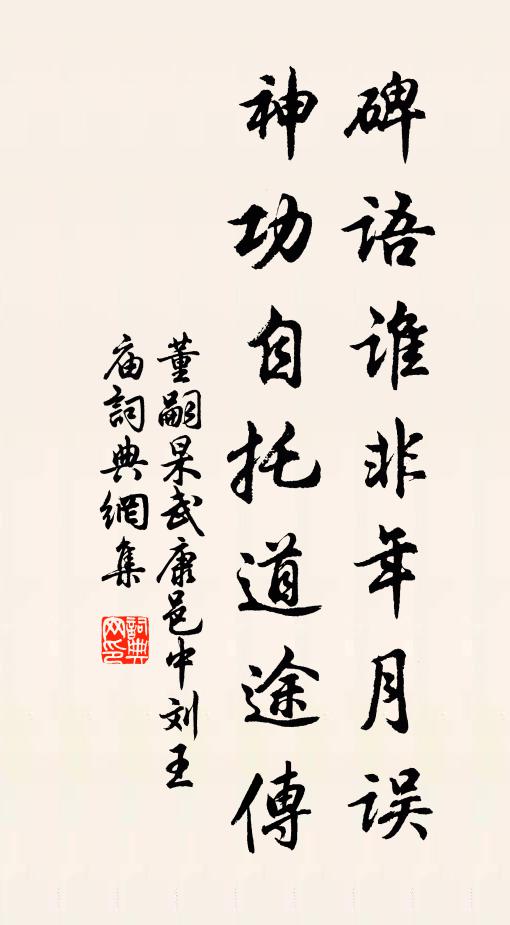 碑语谁非年月误
神功自托道途傳
董嗣杲武康邑中刘王
庙詞典網集
詞典
网印